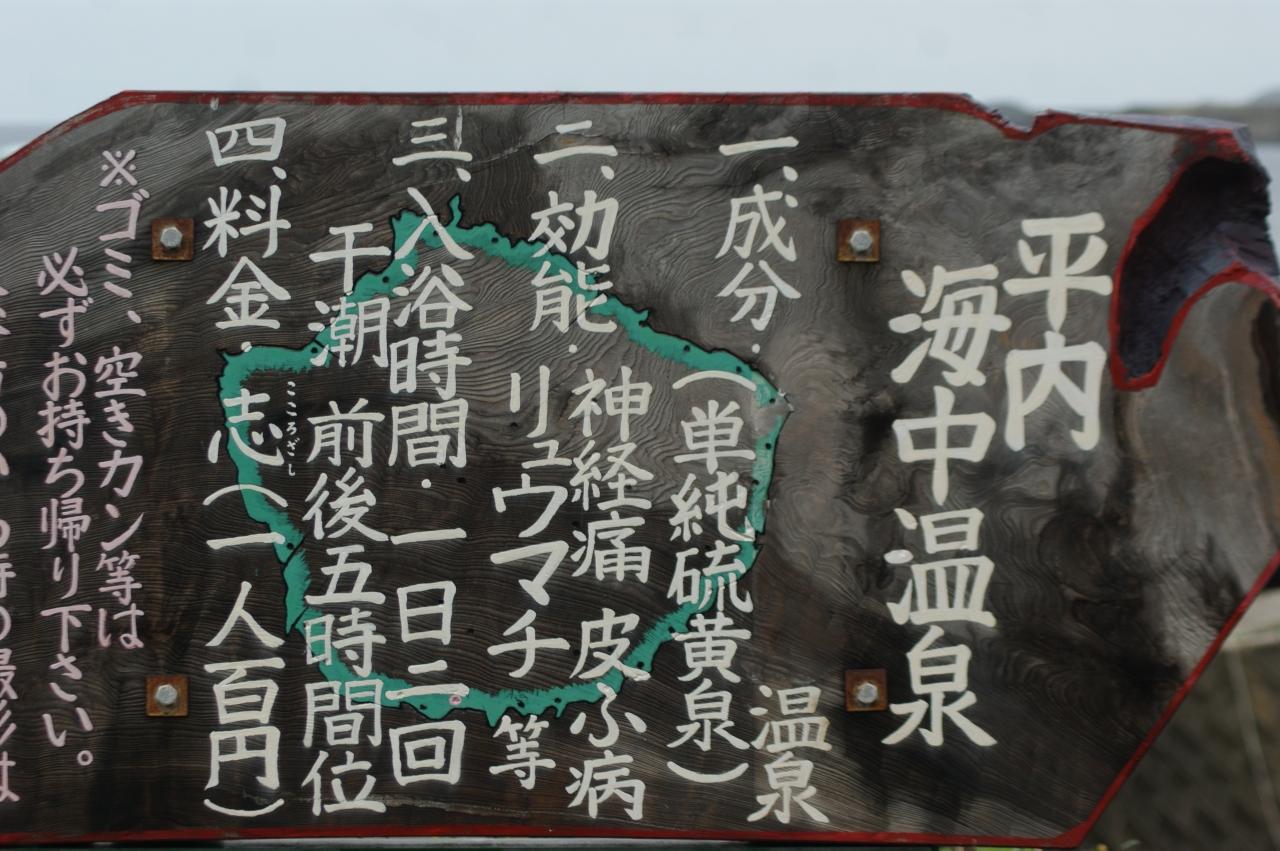 平内
海中温泉
一、成分・
温泉
(単純硫黄泉)
二、効能・
神経痛 皮ふ病
リュウマチ 等
三、入浴時間・一日二回
干潮 前後五時間位
四、料金・志(一人百円)
こころざし
※ゴミ、空きカン等は
必ずお持ち帰り下さい。